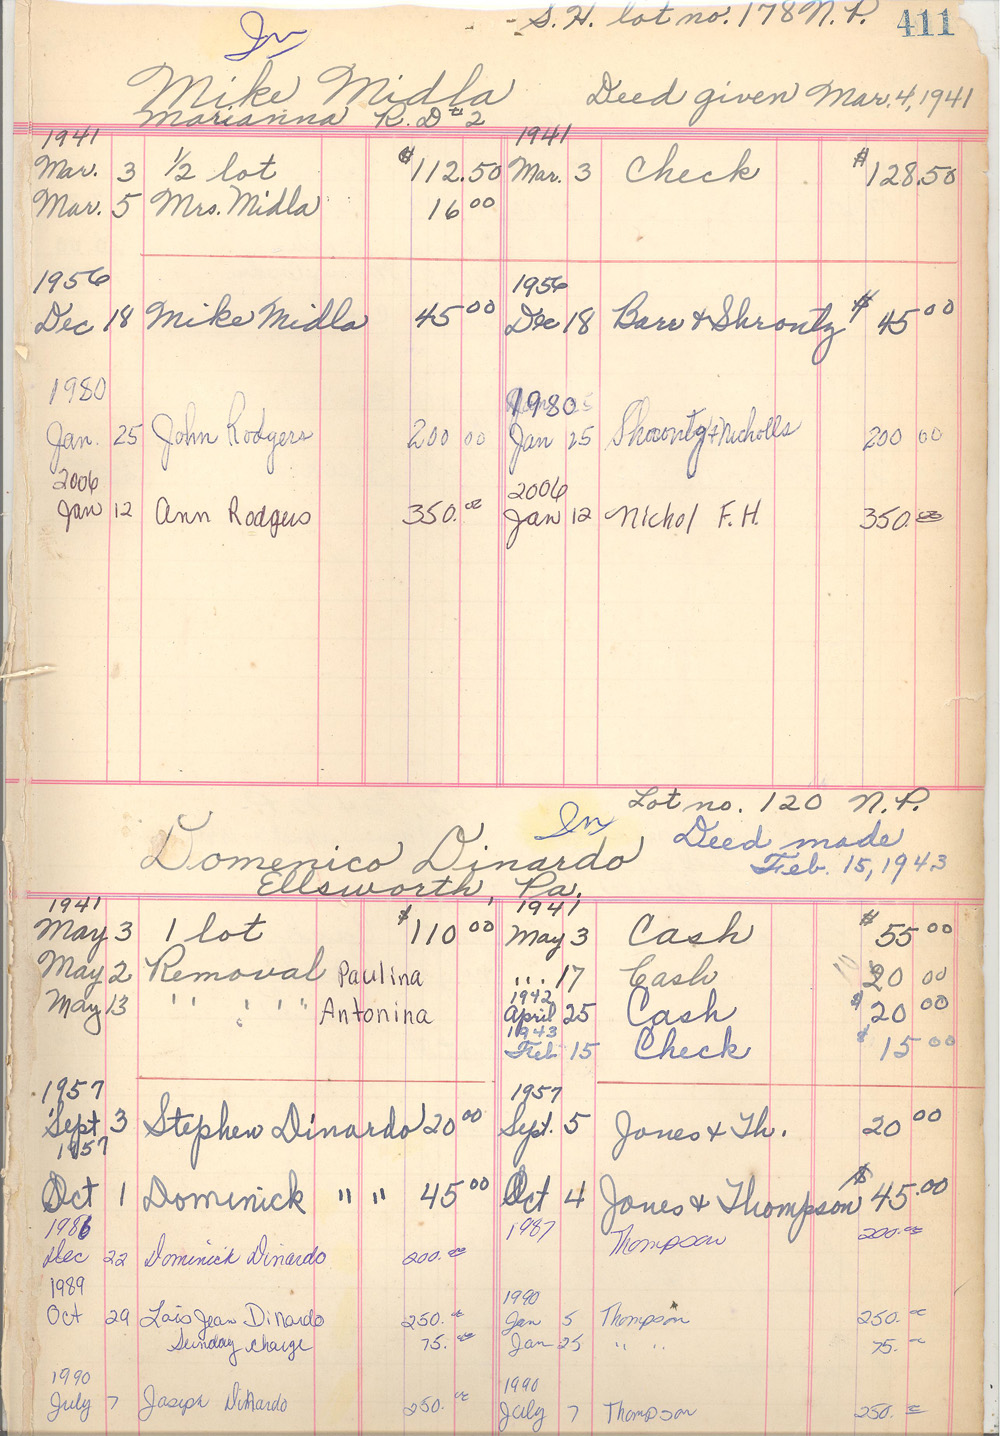 S. H. lot no. 178 N. P. 411
Mike Midla Deed given Mar. 4, 1941
Marianna R. D # 2
1941 1941
Mar. 3 1/2 lot $112.50 Mar. 3 Check $128.50
Mar. 5 Mrs. Midla 16 00
1956 1956
Dec 18 Mike Midla 45 00 Dec 18 Barr & Shrontz $ 45 00
1980 1980
Jan. 25 John Rodgers 200 00 Jan 25 Shrontz & Nicholls 200 00
2006 2006
Jan 12 Ann Rodgers 350. 00 Jan 12 Nichol F. H. 350. 00
Lot no. 120 N. P.
Domenico Dinardo Deed made
Feb. 15, 1943
Ellsworth, Pa.
1941 1941
May 3 1 lot $110 00 May 3 Cash $ 55 00
May 2 Removal Paulina " " 17 Cash 20 00
May 13 " " " " Antonina 1942 April 25 Cash $ 20 00
1943 Feb 15 Check $ 15 00
1957 1957
Sept 3 Stephen Dinardo 20 00 Sept. 5 Jones & Th. 20 00
1957
Oct 1 Dominick " " 45 00 Oct 4 Jones & Thompson $ 45.00
1986 1987 Thompson 200. 00
Dec 22 Dominick Dinardo 200. 00
1989 1990
Oct 29 Lois Jean DiNardo 250. 00 Jan 5 Thompson 250. 00
Sunday charge 75. 00 Jan 25 " " 75. 00
1990 1990
July 7 Joseph DiNardo 250. 00 July 7 Thompson 250. 00